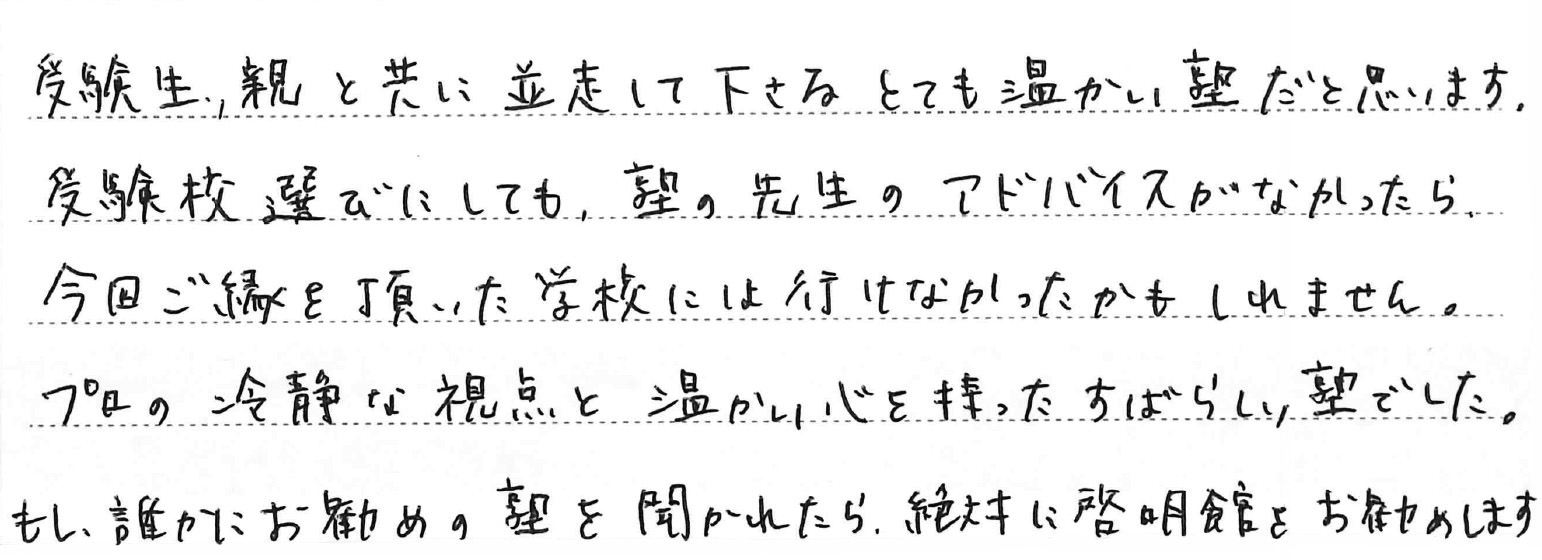 受験生、親と共に並走して下さるとても温かい塾だと思います.
受験校選びにしても、塾の先生のアドバイスがなかったら、
今回ご縁を頂いた学校には行けなかったかもしれません。
プロの冷静な視点と温かい心を持ったすばらしい塾でした。
もし、誰かにお勧めの塾を聞かれたら、絶対に啓明館をお勧めします